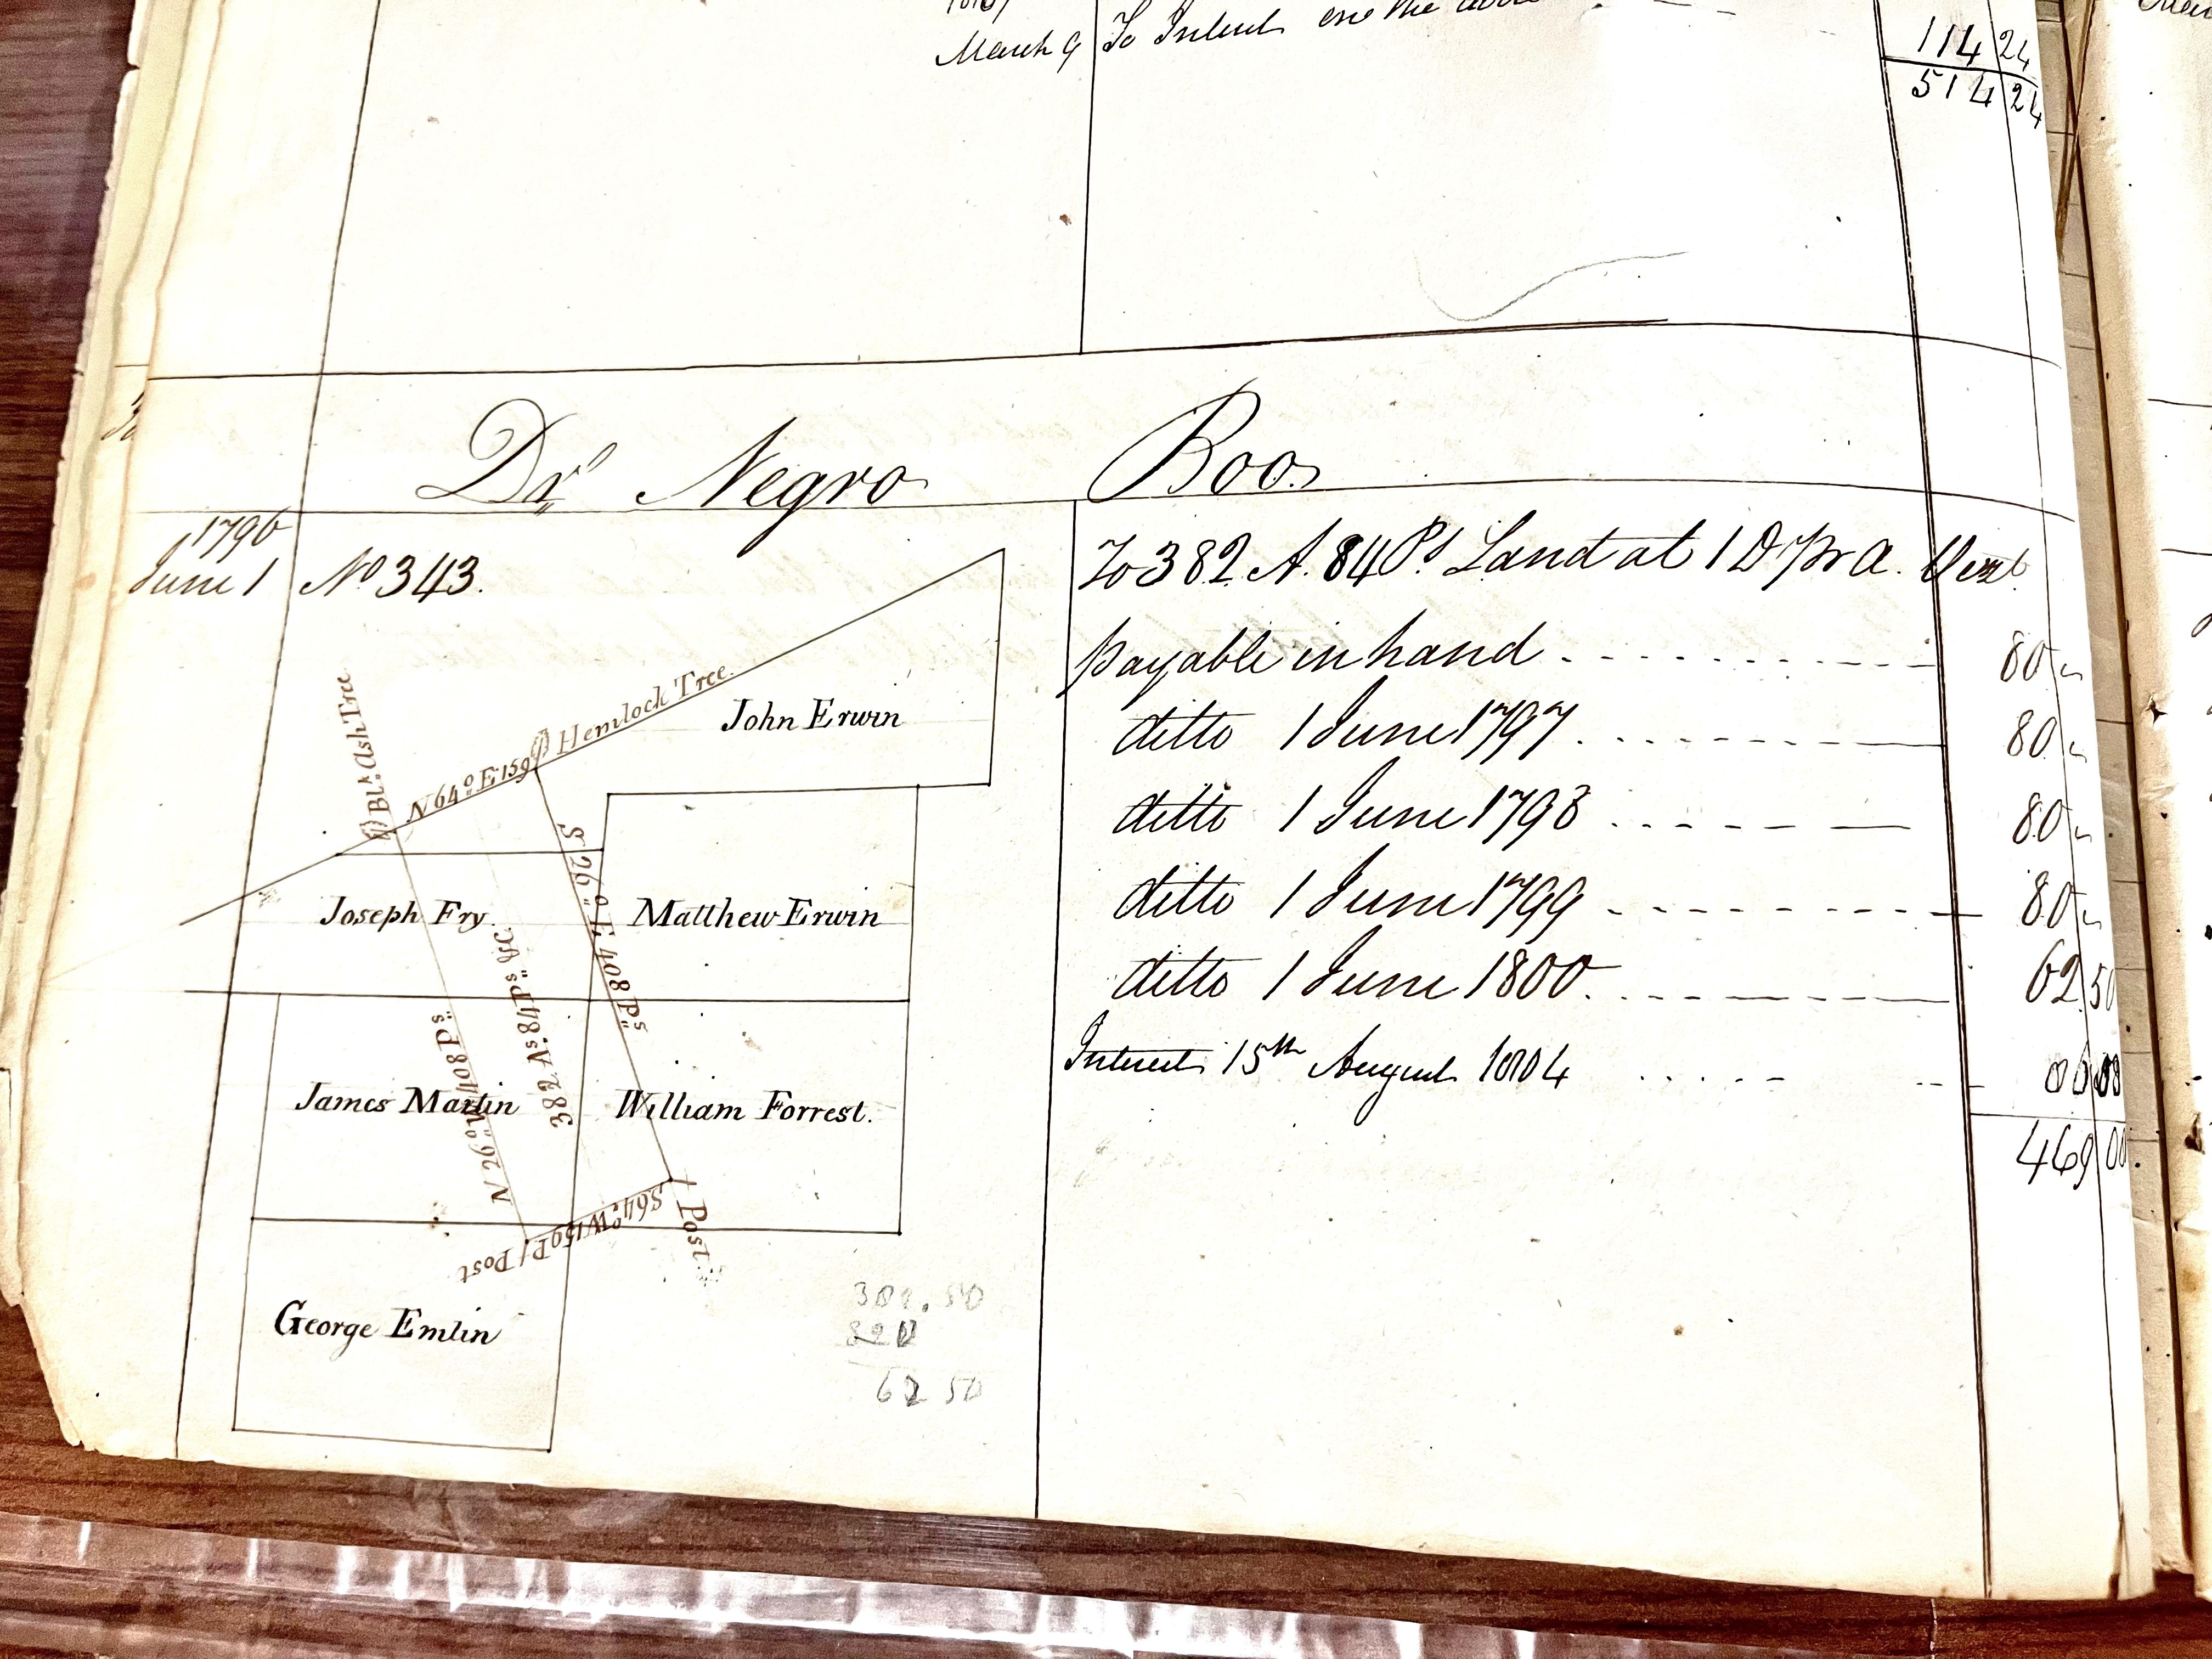 March 9 To Interest on the above
114 24
514 24
Dr. Negro Boo.
1796
June 1 No 343. To 382 A. 84 Ps. Land at 1 D pr A. Vizt
payable in hand 80
ditto 1 June 1797 80
ditto 1 June 1798 80
ditto 1 June 1799 80
ditto 1 June 1800. 62 50
Interest 15th August 1804
469 00
Blk. Ash Tree
N 64° E 159
Hemlock Tree.
John Erwin
S 26° E 408 Ps
Joseph Fry
Matthew Erwin
382 As. 84 Ps &c.
N 26° W 408 Ps
James Martin
William Forrest.
S 64° W 159 P
Post
Post
George Emlin
62 50